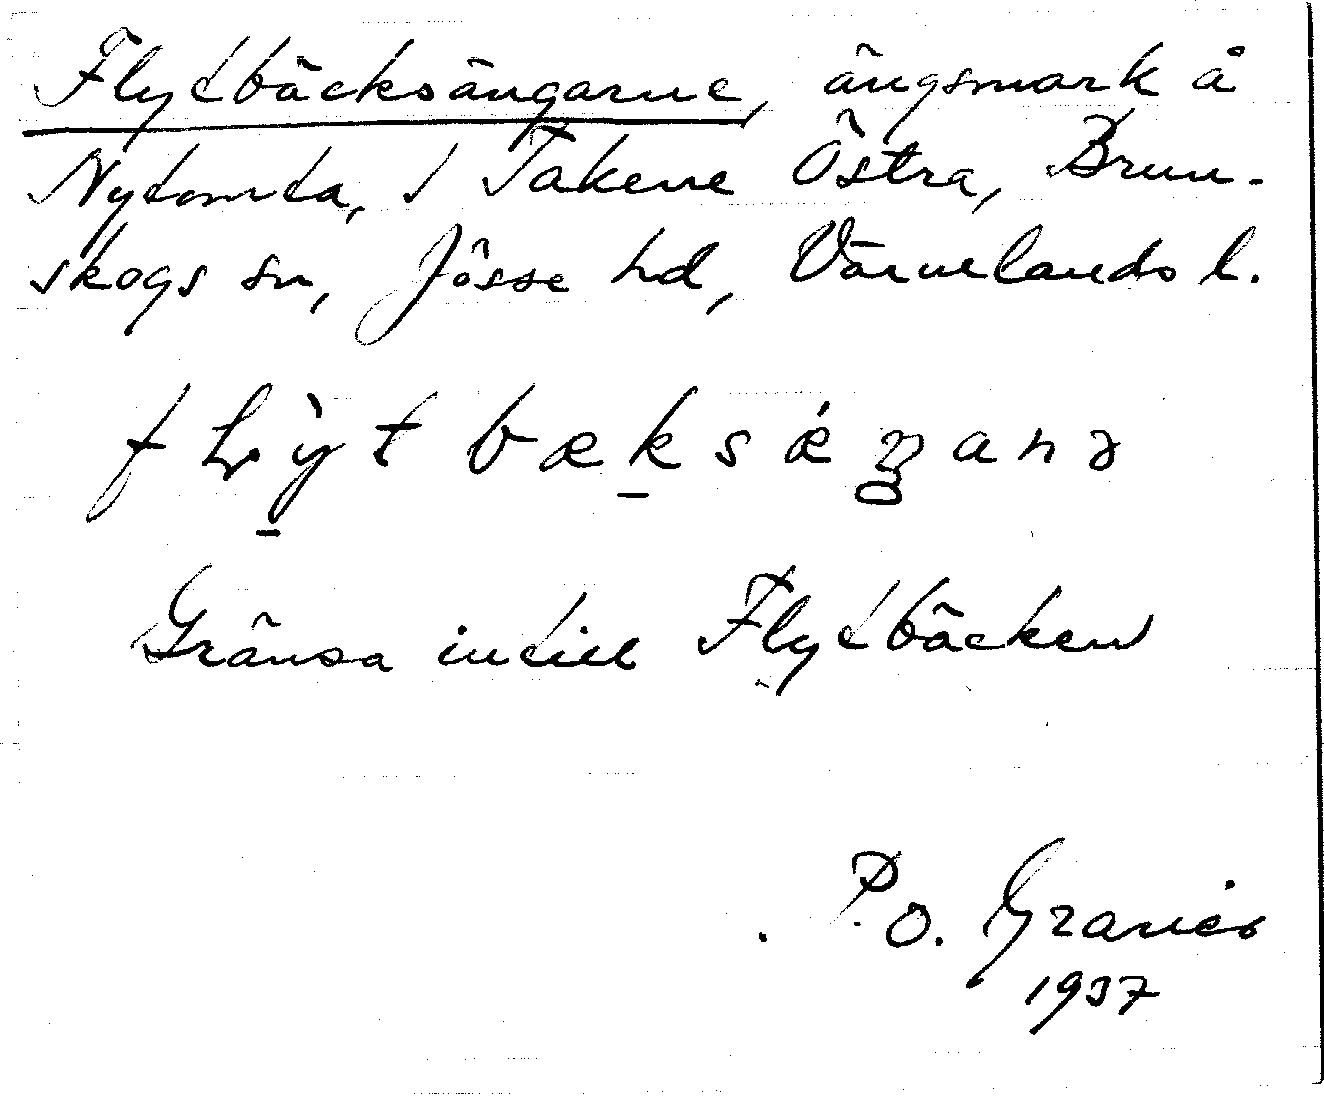 Flytbäcksängarne, ängsmark å
Nytomta, i Takene Östra, Brun-
skogs sn, Jösse hd, Värmlands l.
Gränsa intill Flytbäcken
P. O. Granér
1937